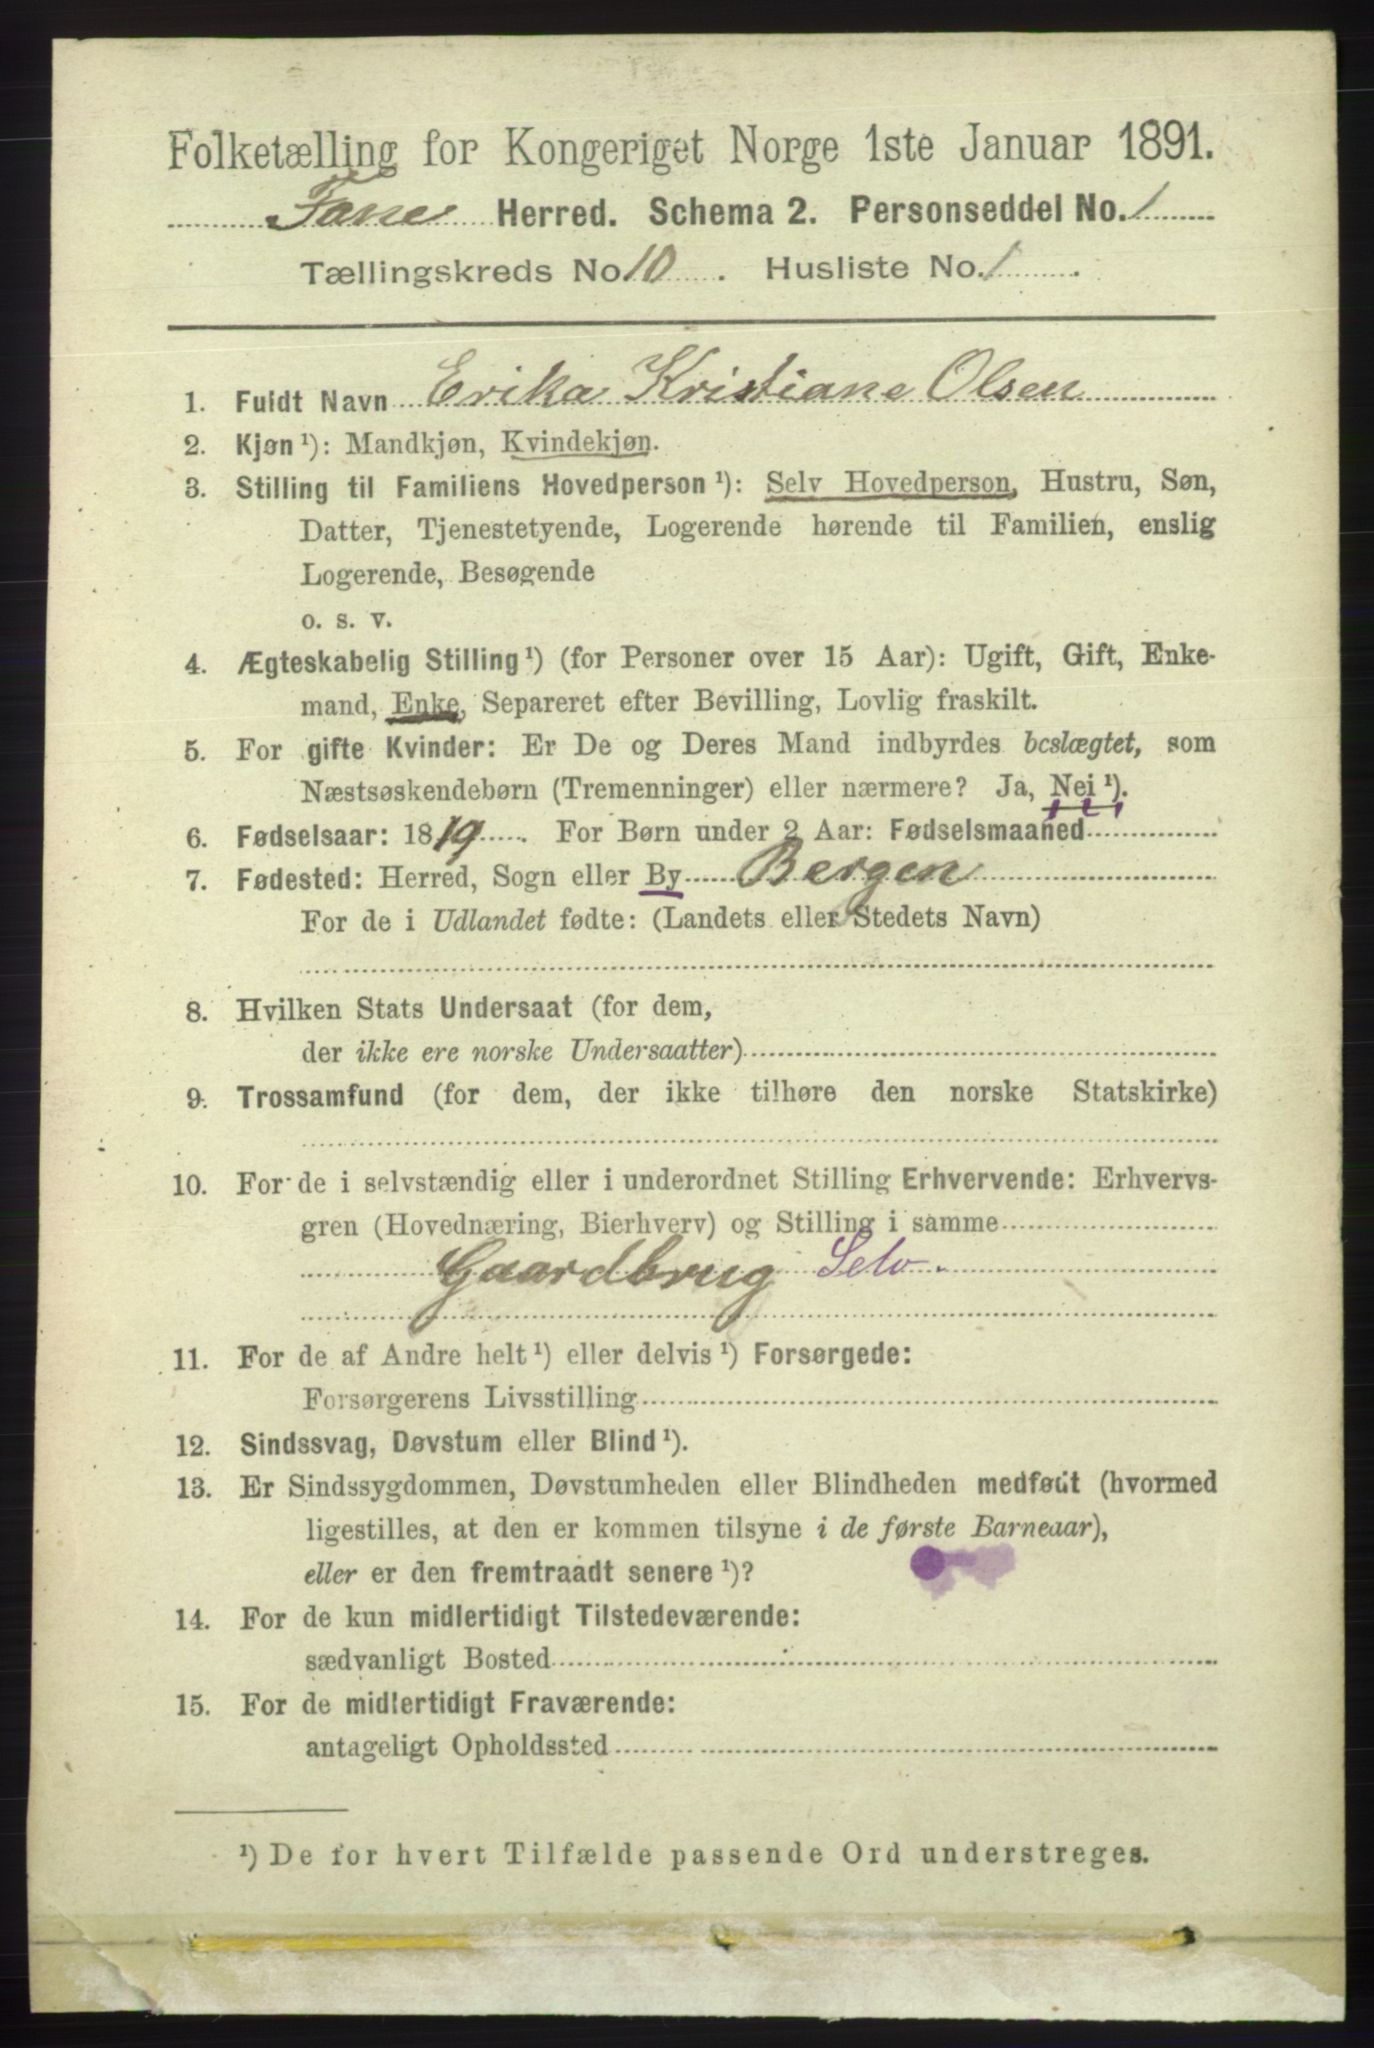 Folketælling for Kongeriget Norge 1ste Januar 1891.
Fane Herred. Schema 2. Personseddel No. 1
Tællingskreds No 10. Husliste No. 1.
1. Fuldt Navn Erika Kristiane Olsen
2. Kjøn ¹): Mandkjøn, Kvindekjøn.
3. Stilling til Familiens Hovedperson ¹): Selv Hovedperson, Hustru, Søn,
Datter, Tjenestetyende, Logerende hørende til Familien, enslig
Logerende, Besøgende
o. s. v.
4. Ægteskabelig Stilling ¹) (for Personer over 15 Aar): Ugift, Gift, Enke-
mand, Enke, Separeret efter Bevilling, Lovlig fraskilt.
5. For gifte Kvinder: Er De og Deres Mand indbyrdes beslægtet, som
Næstsøskendebørn (Tremenninger) eller nærmere? Ja, Nei ¹).
6. Fødselsaar: 1819. For Børn under 2 Aar: Fødselsmaaned
7. Fødested: Herred, Sogn eller By Bergen
For de i Udlandet fødte: (Landets eller Stedets Navn)
8. Hvilken Stats Undersaat (for dem,
der ikke ere norske Undersaatter)
9. Trossamfund (for dem, der ikke tilhøre den norske Statskirke)
10. For de i selvstændig eller i underordnet Stilling Erhvervende: Erhvervs-
gren (Hovednæring, Bierhverv) og Stilling i samme
Gaardbrug Selv.
11. For de af Andre helt ¹) eller delvis ¹) Forsørgede:
Forsørgerens Livsstilling
12. Sindssvag, Døvstum eller Blind ¹).
13. Er Sindssygdommen, Døvstumheden eller Blindheden medfødt (hvormed
ligestilles, at den er kommen tilsyne i de første Barneaar),
eller er den fremtraadt senere ¹)?
14. For de kun midlertidigt Tilstedeværende:
sædvanligt Bosted
15. For de midlertidigt Fraværende:
antageligt Opholdssted
¹) De for hvert Tilfælde passende Ord understreges.